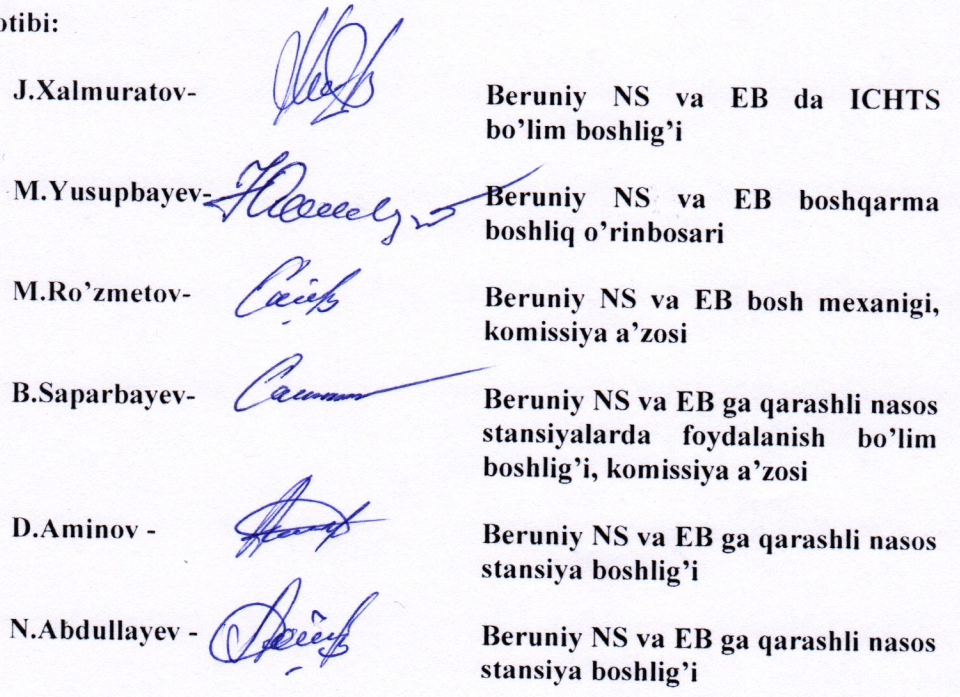 otibi:
J.Xalmuratov-
Beruniy NS va EB da ICHTS
bo’lim boshlig’i
M.Yusupbayev-
Beruniy NS va EB boshqarma
boshliq o’rinbosari
M.Ro’zmetov-
Beruniy NS va EB bosh mexanigi,
komissiya a’zosi
B.Saparbayev-
Beruniy NS va EB ga qarashli nasos
stansiyalarda foydalanish bo’lim
boshlig’i, komissiya a’zosi
D.Aminov -
Beruniy NS va EB ga qarashli nasos
stansiya boshlig’i
N.Abdullayev -
Beruniy NS va EB ga qarashli nasos
stansiya boshlig’i